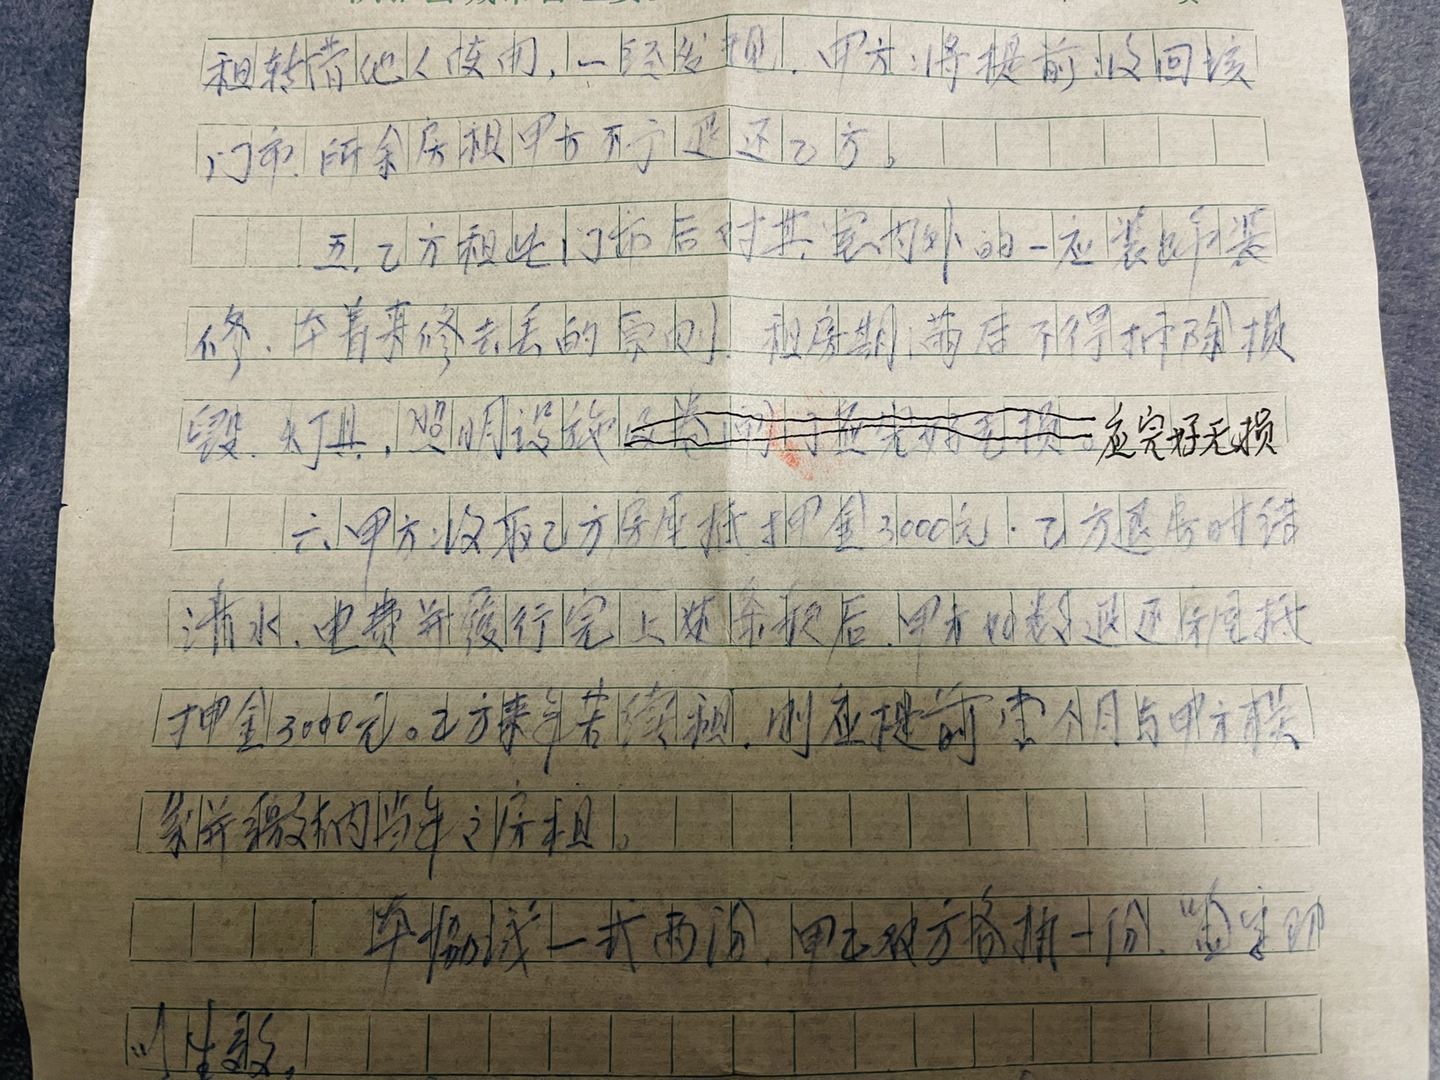 租转营他人使用,一经发现.甲方将提前收回该
门市.所余房租甲方不予退还乙方。
五.乙方租此门市后对其室内外的一应装饰装
修.本着来修去丢的原则.租房期满后不得拆除损
毁.灯具,照明设施及卷闸门应完好无损。应完好无损
六.甲方收取乙方房屋抵押金3000元.乙方退房时结
清水.电费并履行完上述条款后.甲方如数退还房屋抵
押金3000元。乙方来年若续租.则应提前壹个月与甲方联
系并缴纳当年之房租。
本协议一式两份.甲乙双方各执一份.签字即
生效.